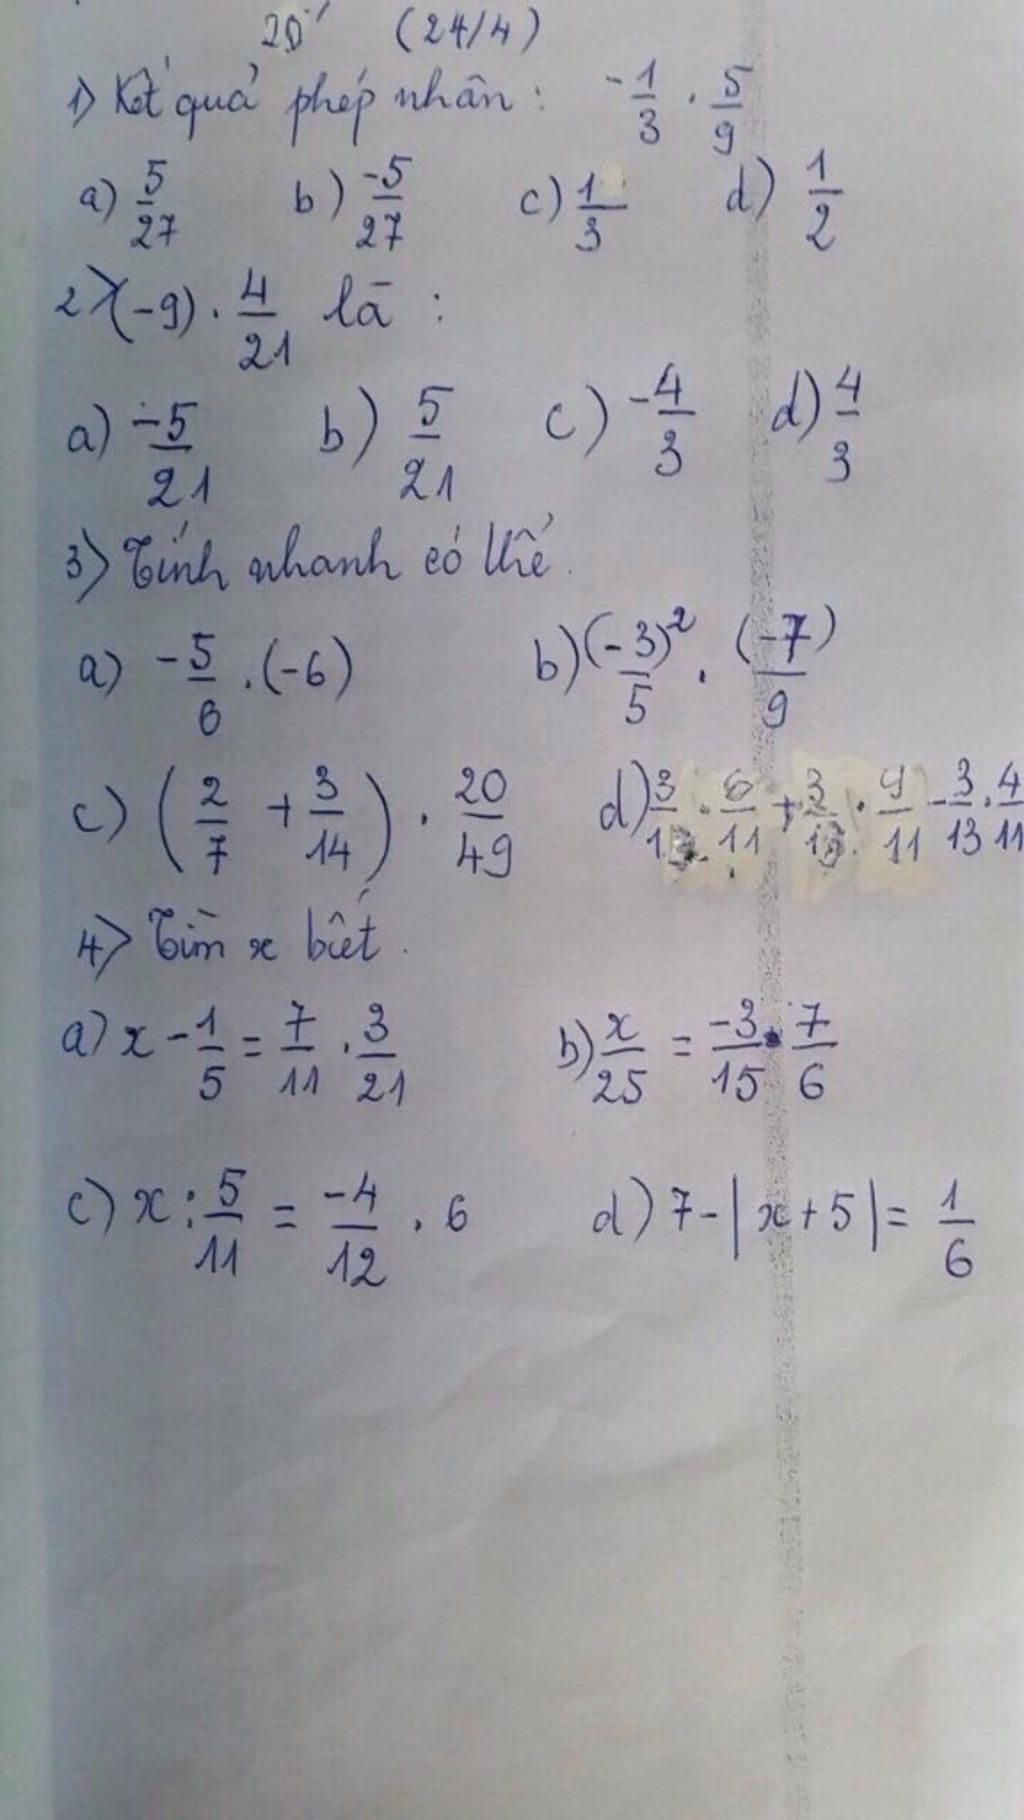 20' (24/4)
1) Kết quả phép nhân: -1/3 . 5/9
a) 5/27 b) -5/27 c) 1/3 d) 1/2
2) (-9) . 4/21 là :
a) -5/21 b) 5/21 c) -4/3 d) 4/3
3) Tính nhanh có thể.
a) -5/6 . (-6) b) (-3)²/5 . (-7)/9
c) (2/7 + 3/14) . 20/49 d) 3/13 . 6/11 + 3/13 . 9/11 - 3/13 . 4/11
4) Tìm x biết.
a) x - 1/5 = 7/11 . 3/21 b) x/25 = -3/15 . 7/6
c) x : 5/11 = -4/12 . 6 d) 7 - |x + 5| = 1/6